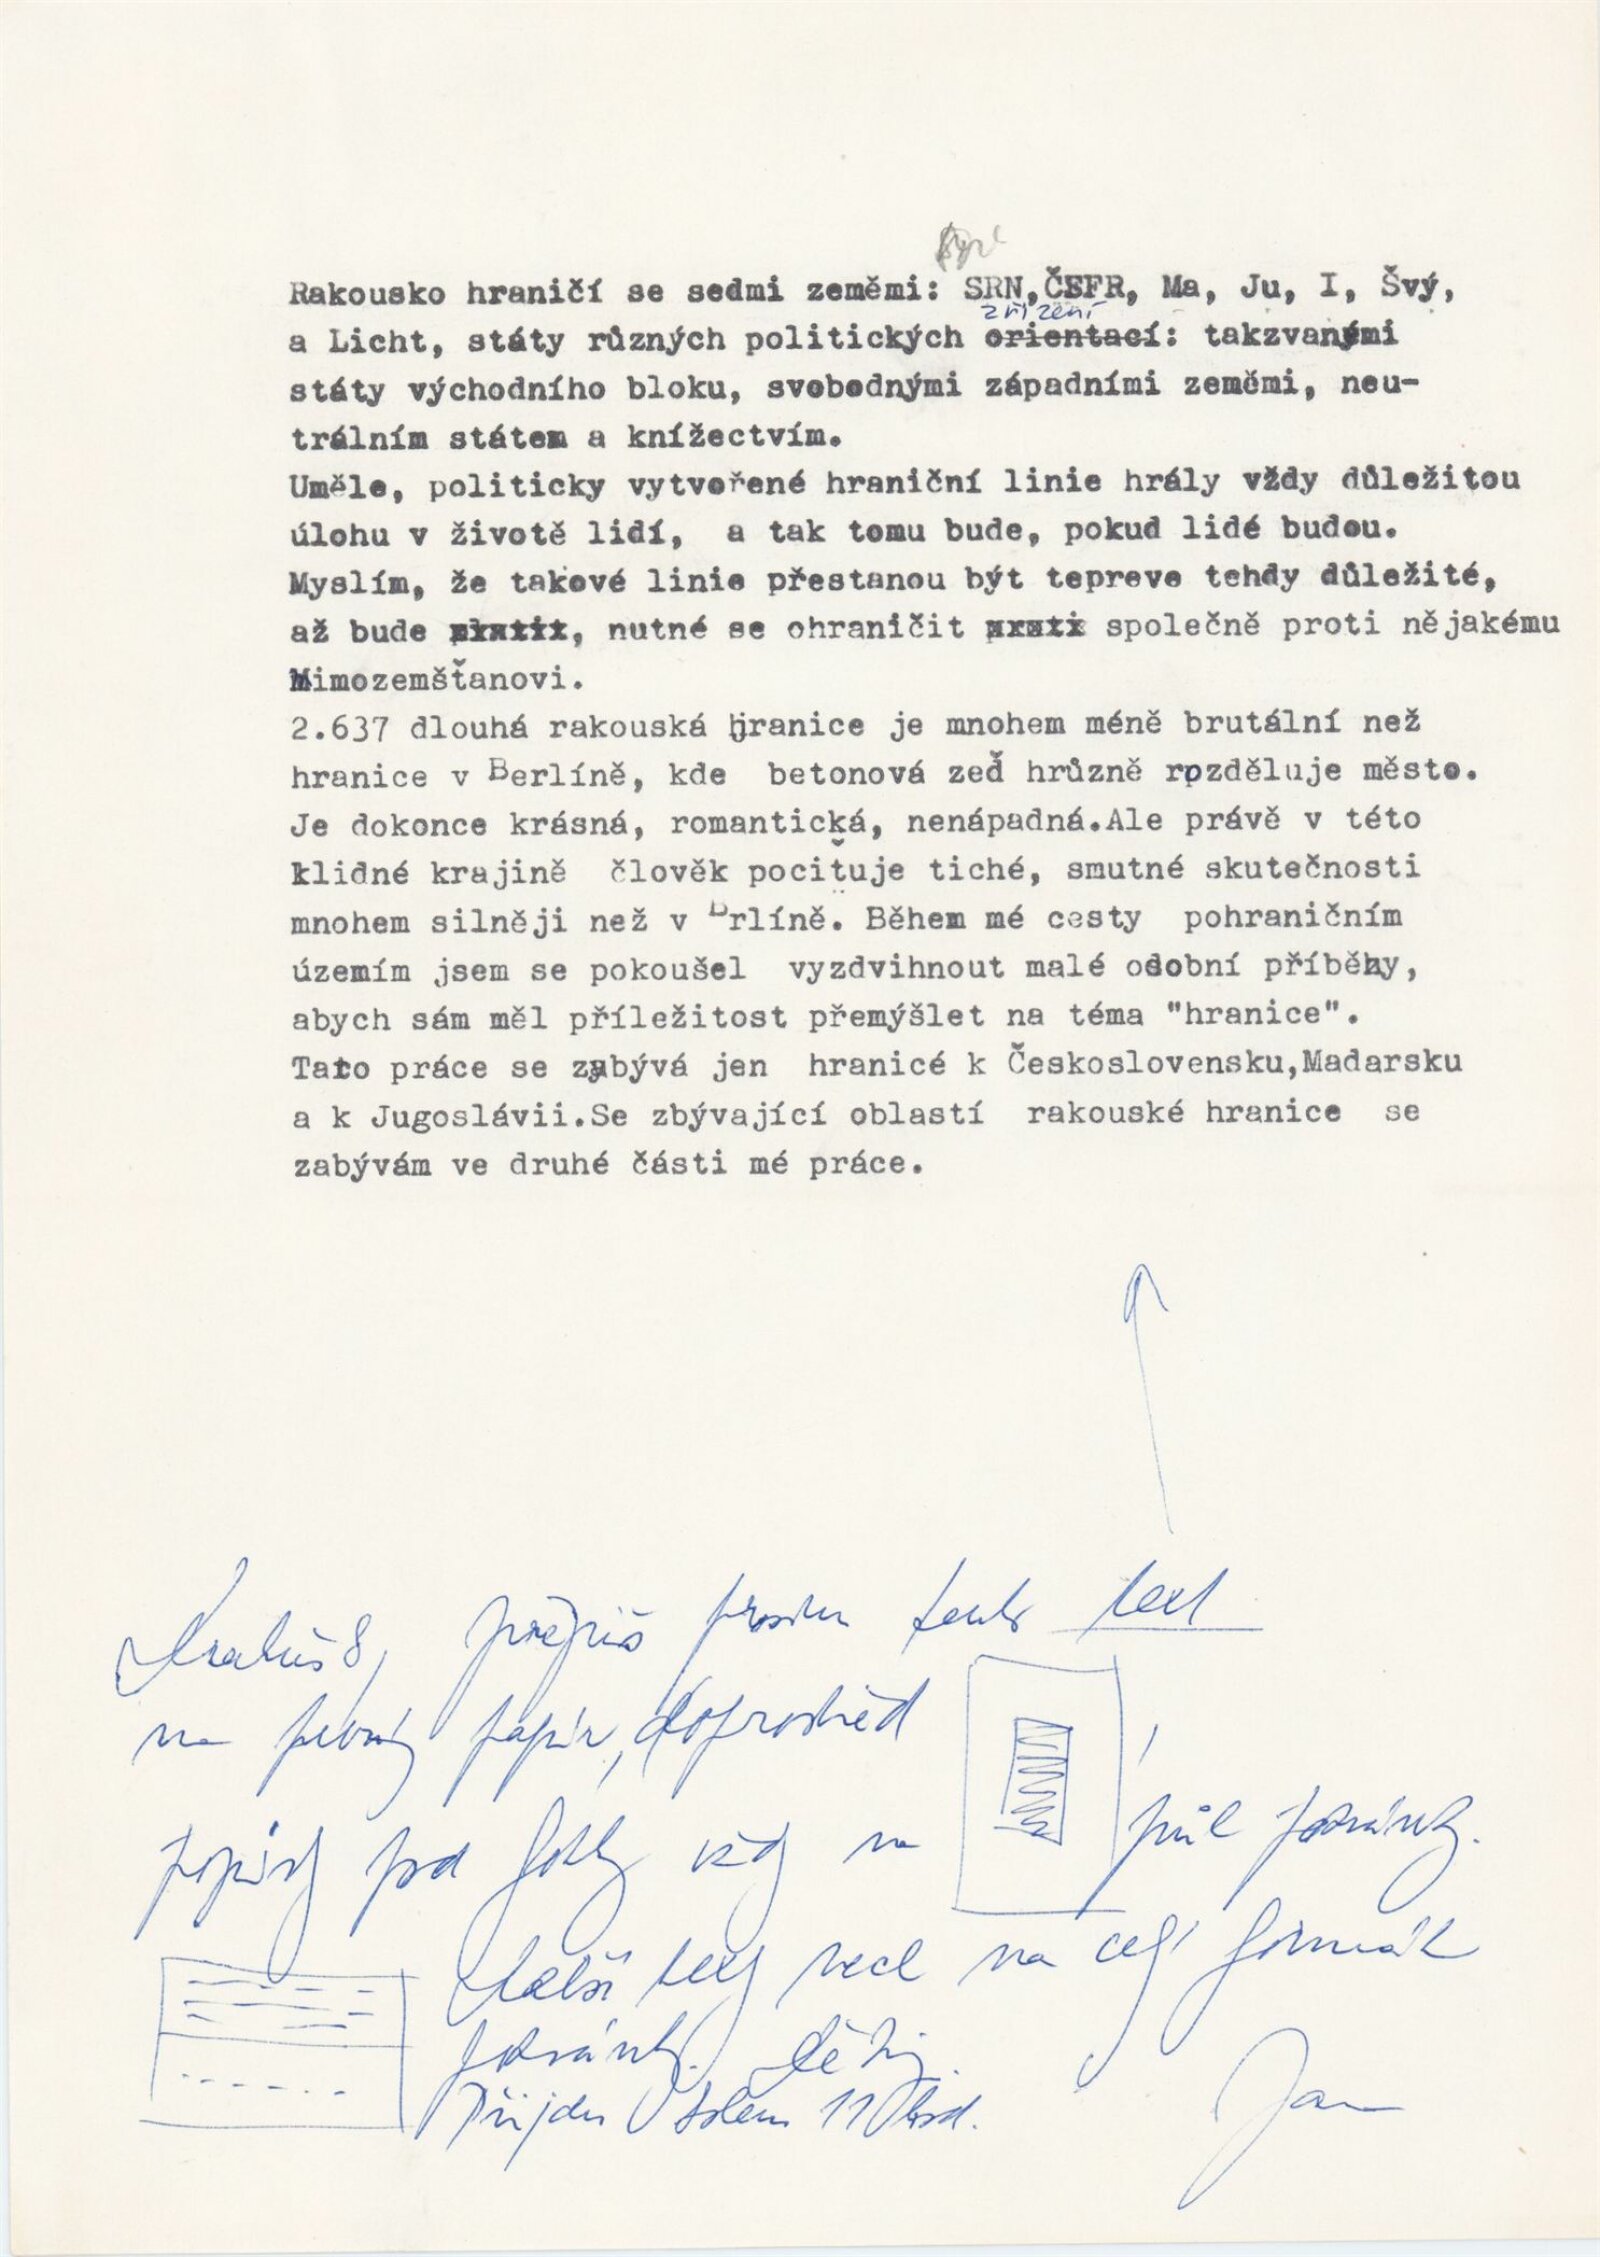 Rakousko hraničí se sedmi zeměmi: SRN,ČSFR, Ma, Ju, I, Švý,
zřízení
a Licht, státy různých politických orientací: takzvanými
státy východního bloku, svobodnými západními zeměmi, neu-
trálním státem a knížectvím.
Uměle, politicky vytvořené hraniční linie hrály vždy důležitou
úlohu v životě lidí, a tak tomu bude, pokud lidé budou.
Myslím, že takové linie přestanou být tepreve tehdy důležité,
až bude , nutné se ohraničit společně proti nějakému
Mimozemšťanovi.
2.637 dlouhá rakouská hranice je mnohem méně brutální než
hranice v Berlíně, kde betonová zeď hrůzně rozděluje město.
Je dokonce krásná, romantická, nenápadná.Ale právě v této
klidné krajině člověk pociťuje tiché, smutné skutečnosti
mnohem silněji než v Brlíně. Během mé cesty pohraničním
územím jsem se pokoušel vyzdvihnout malé osobní příběhy,
abych sám měl příležitost přemýšlet na téma "hranice".
Tato práce se zabývá jen hranicé k Československu,Madarsku
a k Jugoslávii.Se zbývající oblastí rakouské hranice se
zabývám ve druhé části mé práce.
přepiš prosím tento text
na pevný papír, doprostřed
papíry pod fotky vždy na půl stránky.
Další texty než na celý formát
stránky. Děkuji.
Přijdu kolem 11 hod.
Jan